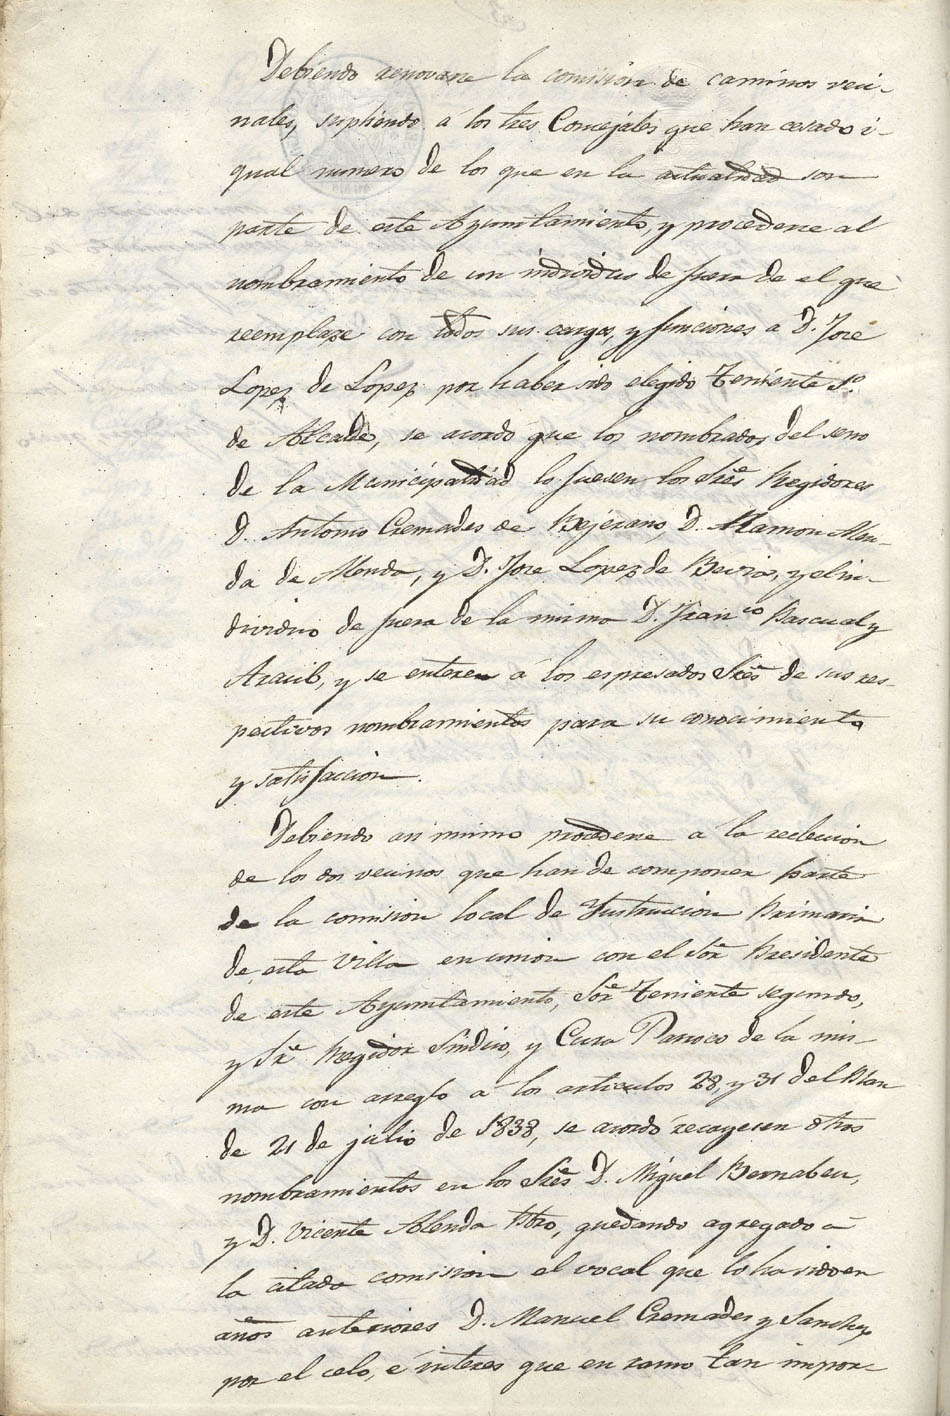 Debiendo renovarse la comision de caminos veci-
nales, supliendo á los tres Concejales que han cesado i-
gual numero de los que en la actualidad son
parte de este Ayuntamiento, y procederse al
nombramiento de un individuo de fuera de el que
reemplaze con todos sus cargos, y funciones a D. Jose
Lopez de Lopez por haber sido elegido Teniente 1º
de Alcalde, se acordó que los nombrados del seno
de la Municipalidad lo fuesen los Sres Regidores
D. Antonio Cremades de Bejerano, D. Ramon Alen-
da de Alenda, y D. Jose Lopez de Beviá, y el in-
dividuo de fuera de la misma D. Franco Pascual y
Araèz, y se enteren á los espresados Sres de sus res-
pectivos nombramientos para su conocimiento
y satisfaccion.
Debiendo asi mismo procederse a la reeleccion
de los dos vecinos que han de componer parte
de la comision local de Instrucion Primaria
de esta Villa en union con el Sor Presidente
de este Ayuntamiento, Sor Teniente segundo,
y Sor Regidor Sindico, y Cura Parroco de la mis-
ma con arreglo á los articulos 28, y 31 del Plan
de 21 de julio de 1838, se acordó recayesen dhos
nombramientos en los Sres D. Miguel Bernabeu,
y D. Vicente Alenda Pbro, quedando agregado á
la citada comision el vocal que lo ha sido en
años anteriores D. Manuel Cremades y Sanchez
por el celo, é interes que en ramo tan impor-